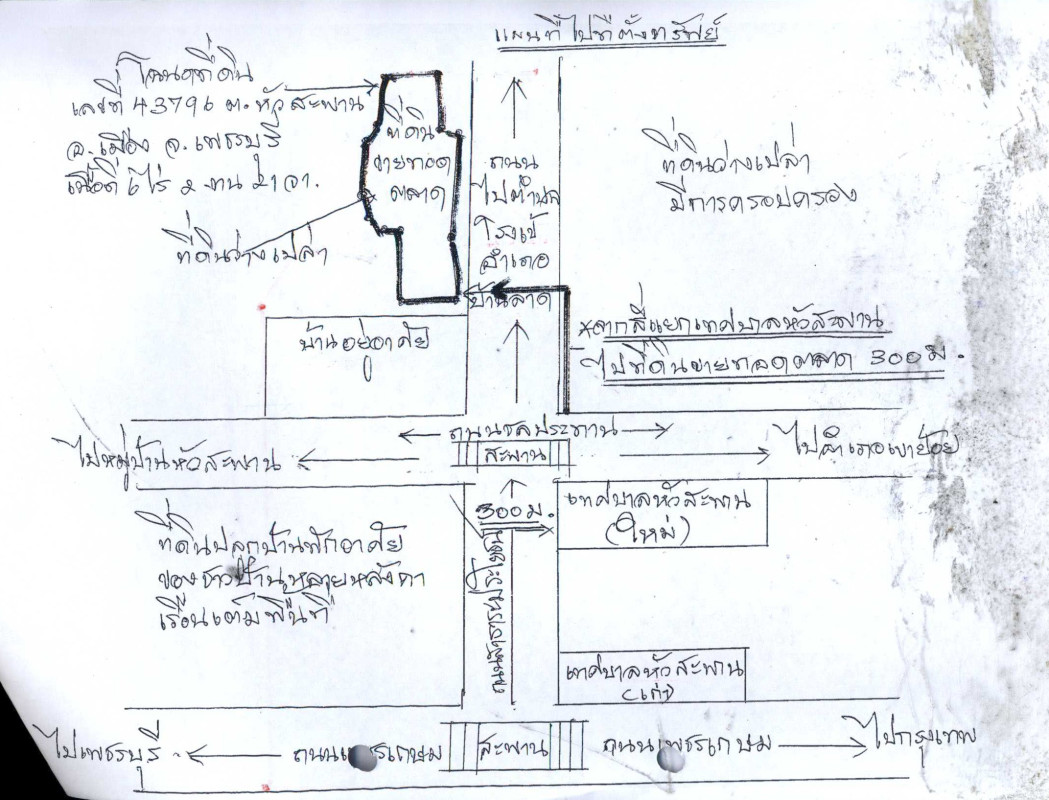 แผนที่ไปที่ตั้งทรัพย์
โฉนดที่ดิน
เลขที่ 43796 ต.หัวสะพาน
อ.เมือง จ.เพชรบุรี
เนื้อที่ 6 ไร่ 2 งาน 21 วา.
ที่ดิน
ขายทอด
ตลาด
ที่ดินว่างเปล่า
ถนน
ไปตำบล
โรงเข้
อำเภอ
บ้านลาด
ที่ดินว่างเปล่า
มีการครอบครอง
บ้านอยู่อาศัย
*จากสี่แยกเทศบาลหัวสะพาน
ไปที่ดินขายทอดตลาด 300 ม.
ถนนชลประทาน
ไปหมู่บ้านหัวสะพาน
สะพาน
ไปอำเภอเขาย้อย
300 ม.
เทศบาลหัวสะพาน
(ใหม่)
ที่ดินปลูกบ้านพักอาศัย
ของชาวบ้านหลายหลังคา
เรือนเต็มพื้นที่
เทศบาลหัวสะพาน
(เก่า)
ไปเพชรบุรี
ถนนเพชรเกษม
สะพาน
ถนนเพชรเกษม
ไปกรุงเทพ